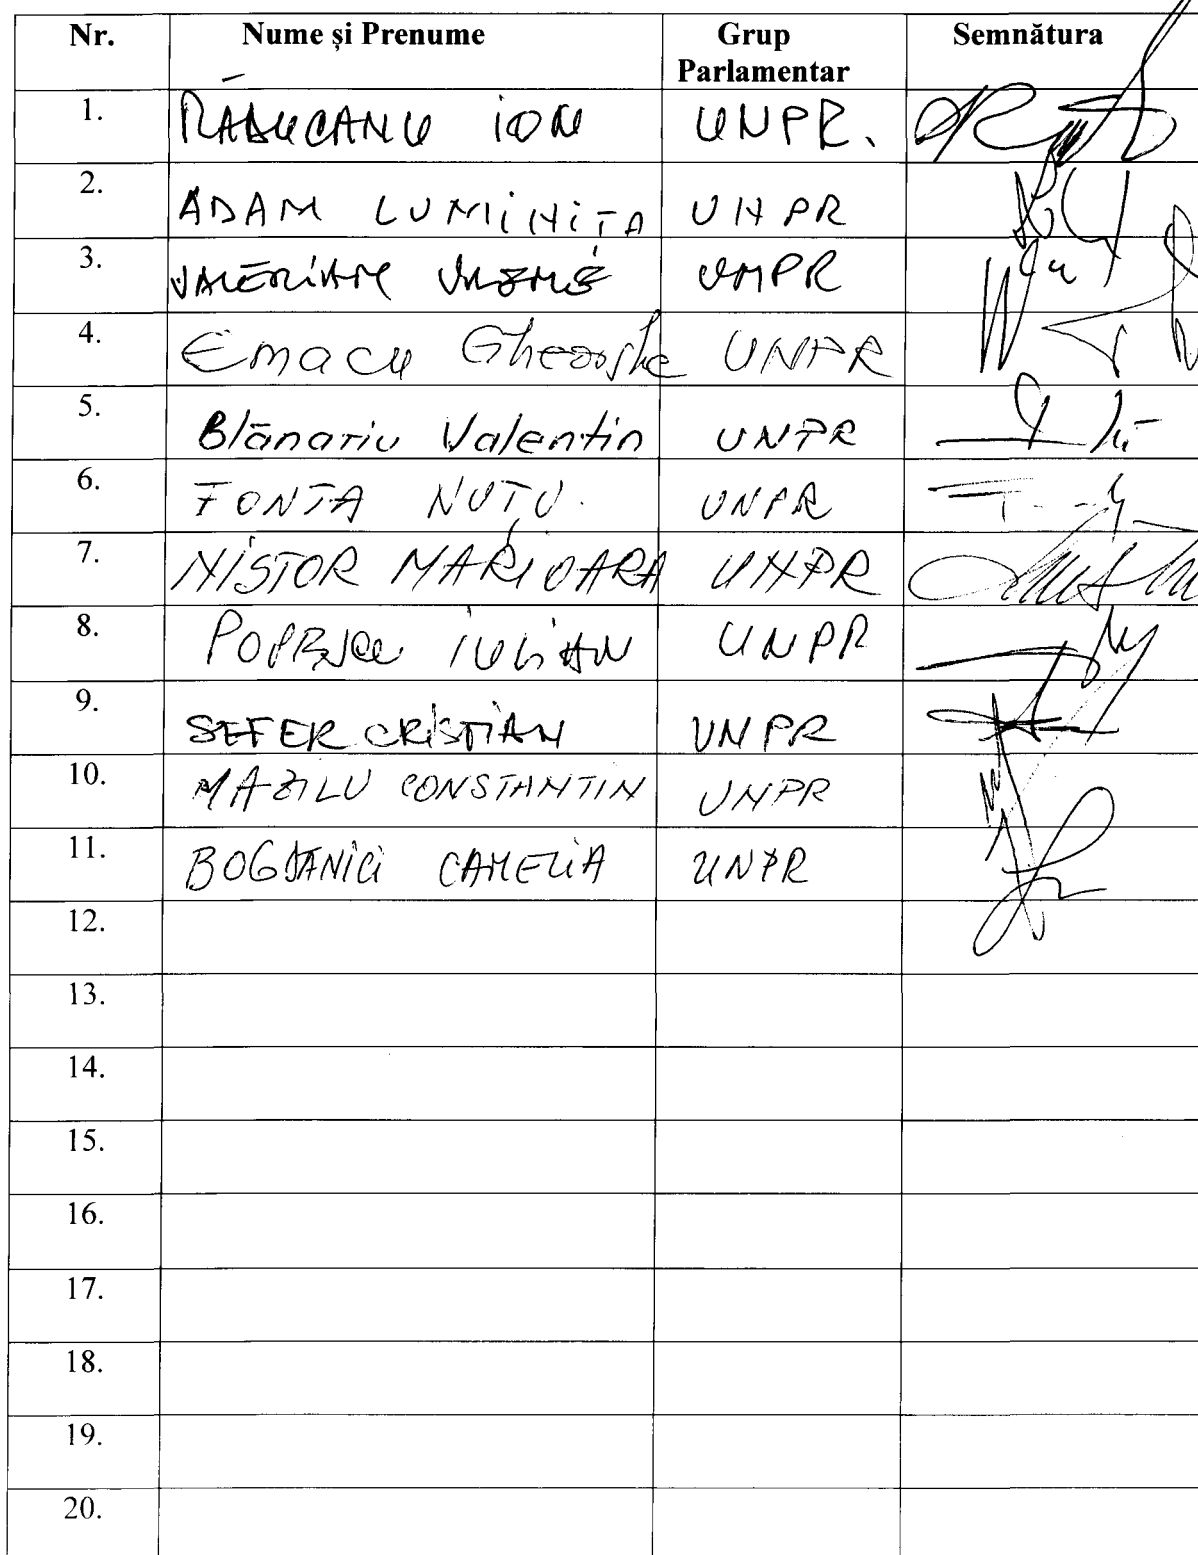 Nr. Nume și Prenume Grup Parlamentar Semnătura
1. RĂDUCANU ION UNPR.
2. ADAM LUMINIȚA UNPR
3. UNPR
4. Emacu Gheorghe UNPR
5. Blănariu Valentin UNPR
6. FONTA NUȚU. UNPR
7. NISTOR MARIOARA UNPR
8. IULIAN UNPR
9. SEFER CRISTIAN UNPR
10. MAZILU CONSTANTIN UNPR
11. BOGDANICI CAMELIA UNPR
12.
13.
14.
15.
16.
17.
18.
19.
20.